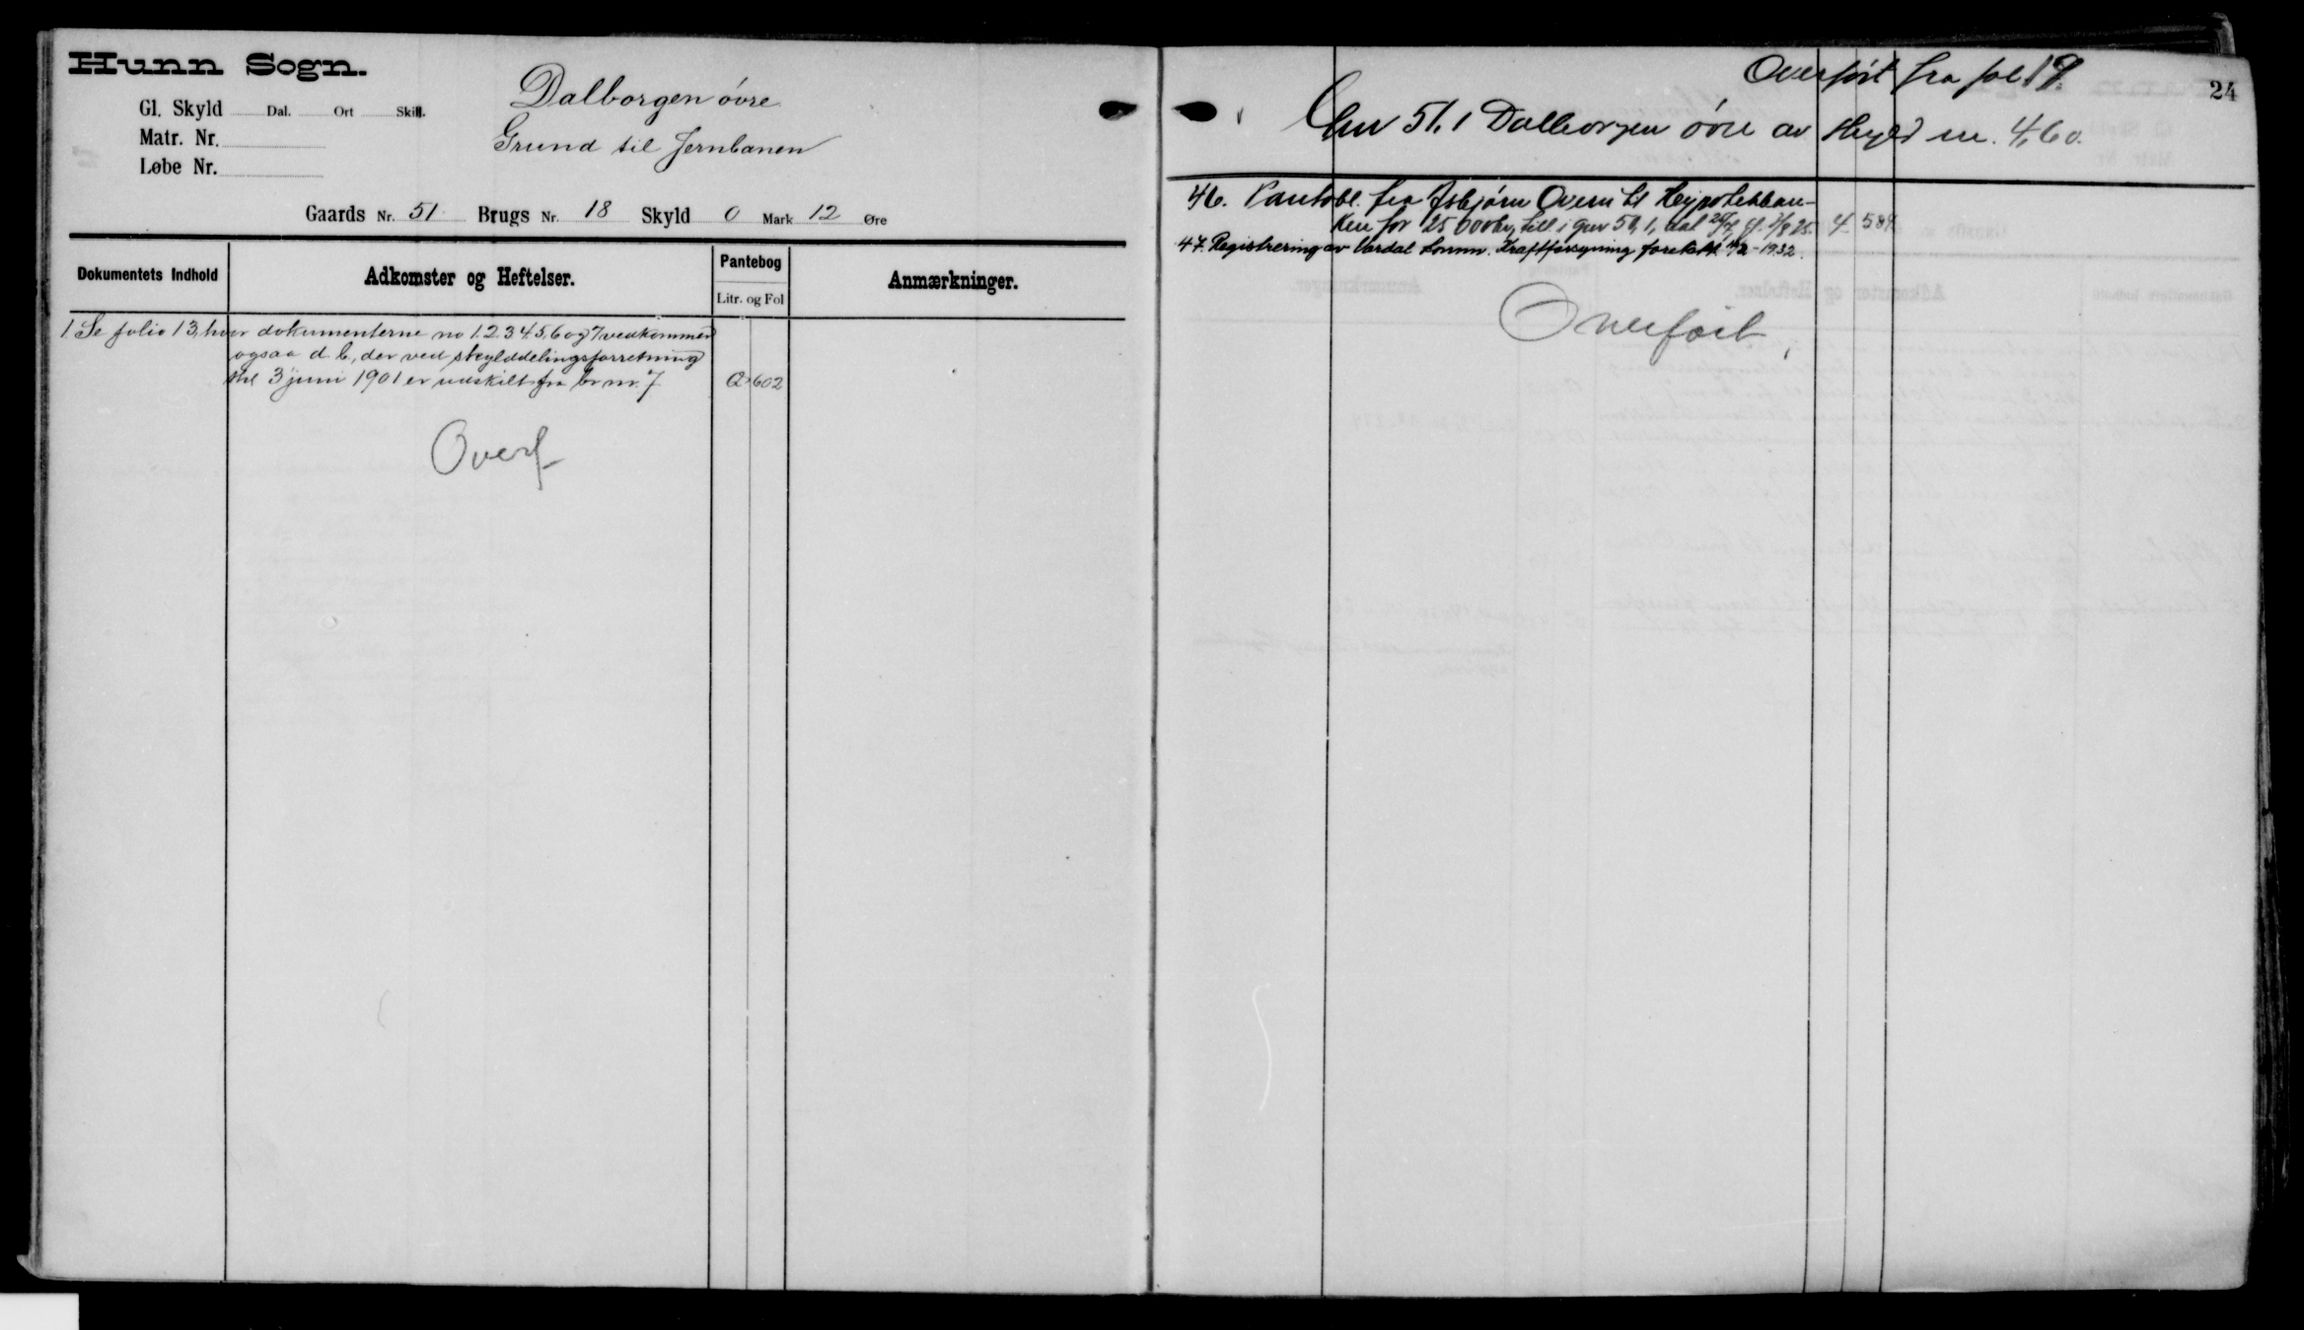 Hunn Sogn.
Gl. Skyld Dal. Ort Skill.
Matr. Nr.
Løbe Nr.
Dalborgen øvre
Grund til Jernbanen
Gaards Nr. 51 Brugs Nr. 18 Skyld 0 Mark 12 Øre
Dokumentets Indhold
Adkomster og Heftelser.
Pantebog
Litr. og Fol
Anmærkninger.
1. Se folio 13, hvor dokumenterne no 1.2.3.4.5.6 og 7 vedkommer
ogsaa d. b, der ved skylddelingsforretning
thl 3 juni 1901 er udskilt fra br nr. 7 Q 602
Overf
Overført fra fol 19.
24
Gnr 51, 1 Dalborgen øvre av skyld m. 4,60.
46. Pantobl. fra Asbjørn Overn til Hypotekban-
ken for 25 000 kr, till. i gnr 51, 1, dat 4 589
47. Registrering av Vardal komm. Kraftforsyning foretatt 1932.
Overført